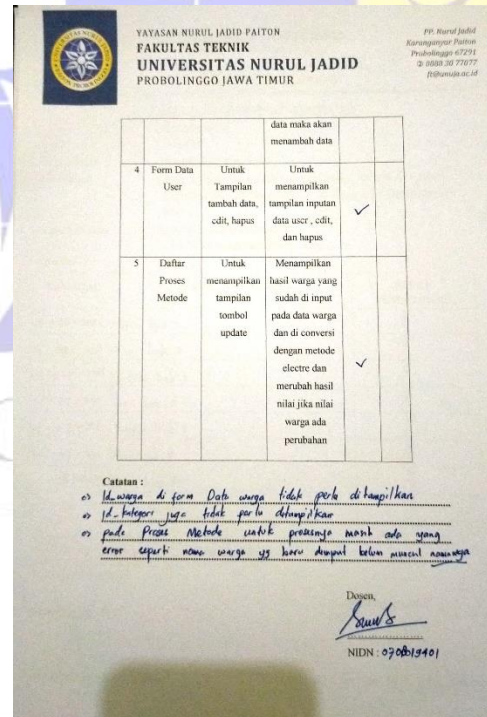 YAYASAN NURUL JADID PAITON
FAKULTAS TEKNIK
UNIVERSITAS NURUL JADID
PROBOLINGGO JAWA TIMUR
PP. Nurul Jadid
Karanganyar Paiton
Probolinggo 67291
0888 30 77077
ft@unuja.ac.id
data maka akan
menambah data
4 Form Data User
Untuk
Tampilan
tambah data,
edit, hapus
Untuk
menampilkan
tampilan inputan
data user , edit,
dan hapus
✓
5 Daftar Proses Metode
Untuk
menampilkan
tampilan
tombol
update
Menampilkan
hasil warga yang
sudah di input
pada data warga
dan di conversi
dengan metode
electre dan
merubah hasil
nilai jika nilai
warga ada
perubahan
✓
Catatan :
Id_warga di form Data warga tidak perlu ditampilkan
Id_kategori juga tidak perlu ditampilkan
pada Proses Metode untuk prosesnya masih ada yang
error seperti nama warga yg baru diinput belum muncul namanya
Dosen,
NIDN :